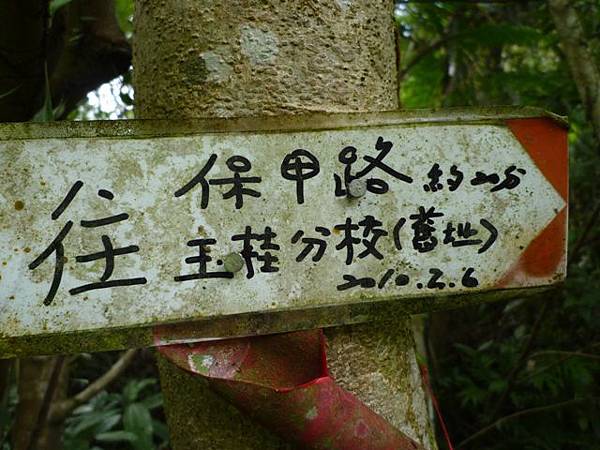 往 保甲路 約20分
玉桂分校(舊址)
2010.2.6